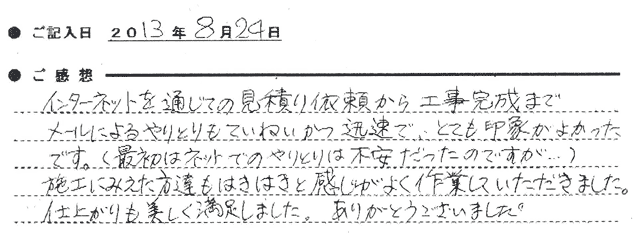 ● ご記入日 2013年8月24日
● ご感想
インターネットを通じての見積り依頼から工事完成まで
メールによるやりとりもていねいかつ迅速で、とても印象がよかった
です。(最初はネットでのやりとりは不安だったのですが…)
施工にみえた方達もはきはきと感じがよく作業していただきました。
仕上がりも美しく満足しました。ありがとうございました。